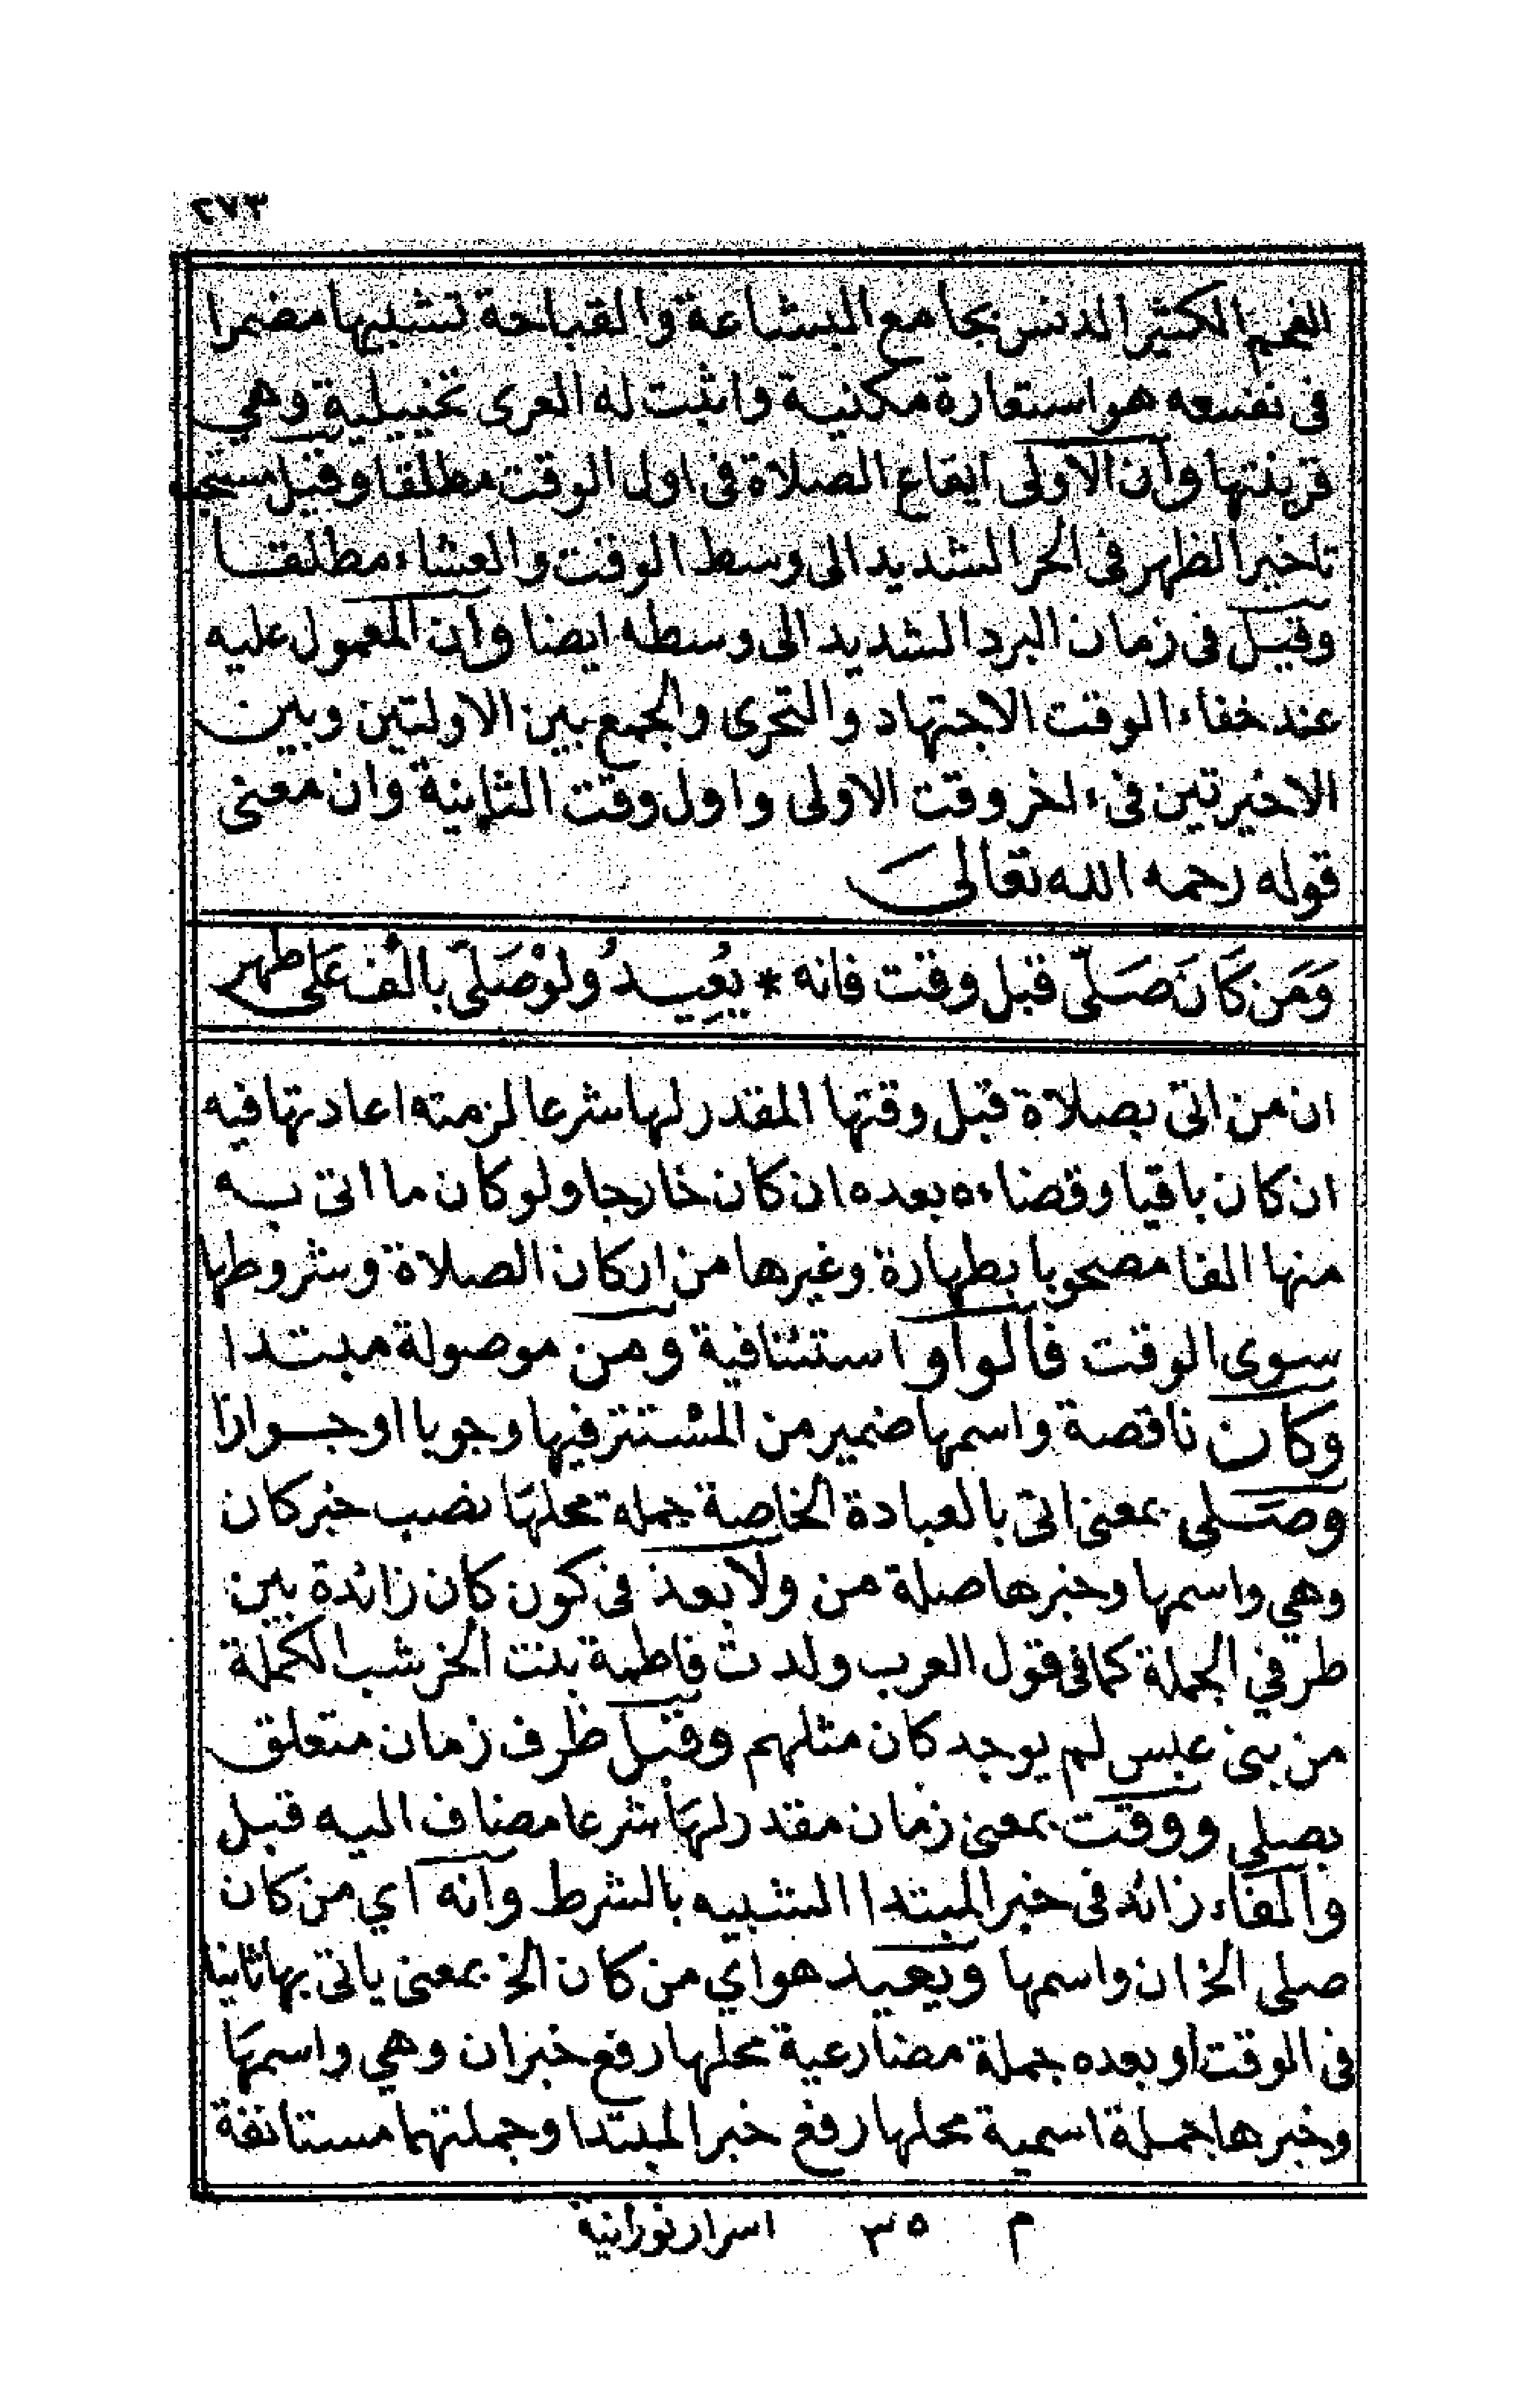 ٢٧٣
الفحم الكثير الدنس بجامع البشاعة والقباحة تشبيها مضمرا
فى نفسه هو استعارة مكنية واثبت له العرى تخييلية وهي
قرينتها وان الاولى ايقاع الصلاة فى اول الوقت مطلقا وقيل يستحب
تاخير الظهر فى الحر الشديد الى وسط الوقت والعشاء مطلقا
وقيل فى زمان البرد الشديد الى وسطه ايضا وان المعمول عليه
عند خفاء الوقت الاجتهاد والتحرى والجمع بين الاولتين وبين
الاخيرتين فى ءاخر وقت الاولى واول وقت الثانية وان معنى
قوله رحمه الله تعالى
وَمَن كَانَ صَلّى قبل وقت فانه * يُعِيدُ ولوْ صَلّى بالْف عَلى طهر
ان من اتى بصلاة قبل وقتها المقدر لها شرعا لزمته اعادتها فيه
ان كان باقيا وقضاءه بعده ان كان خارجا ولو كان ما اتى به
منها الفا مصحوبا بطهارة وغيرها من اركان الصلاة وشروطها
سوى الوقت فالواو استئنافية ومن موصولة مبتدا
وكان ناقصة واسمها ضمير من المستتر فيها وجوبا او جوازا
وصلى بمعنى اتى بالعبادة الخاصة جملة محلها نصب خبر كان
وهي واسمها وخبرها صلة من ولا بعد فى كون كان زائدة بين
طرفي الجملة كما فى قول العرب ولدت فاطمة بنت الخرشب الكملة
من بنى عبس لم يوجد كان مثلهم وقبل ظرف زمان متعلق
بصلى ووقت بمعنى زمان مقدر لها شرعا مضاف اليه قبل
والفاء زائد فى خبر المبتدا الشبيه بالشرط وانه اي من كان
صلى الخ ان واسمها ويعيد هو اي من كان الخ بمعنى ياتى بها ثانيا
فى الوقت او بعده جملة مضارعية محلها رفع خبر ان وهي واسمها
وخبرها جملة اسمية محلها رفع خبر المبتدا وجملتهما مستانفة
م ٣٥ اسرار نورانية